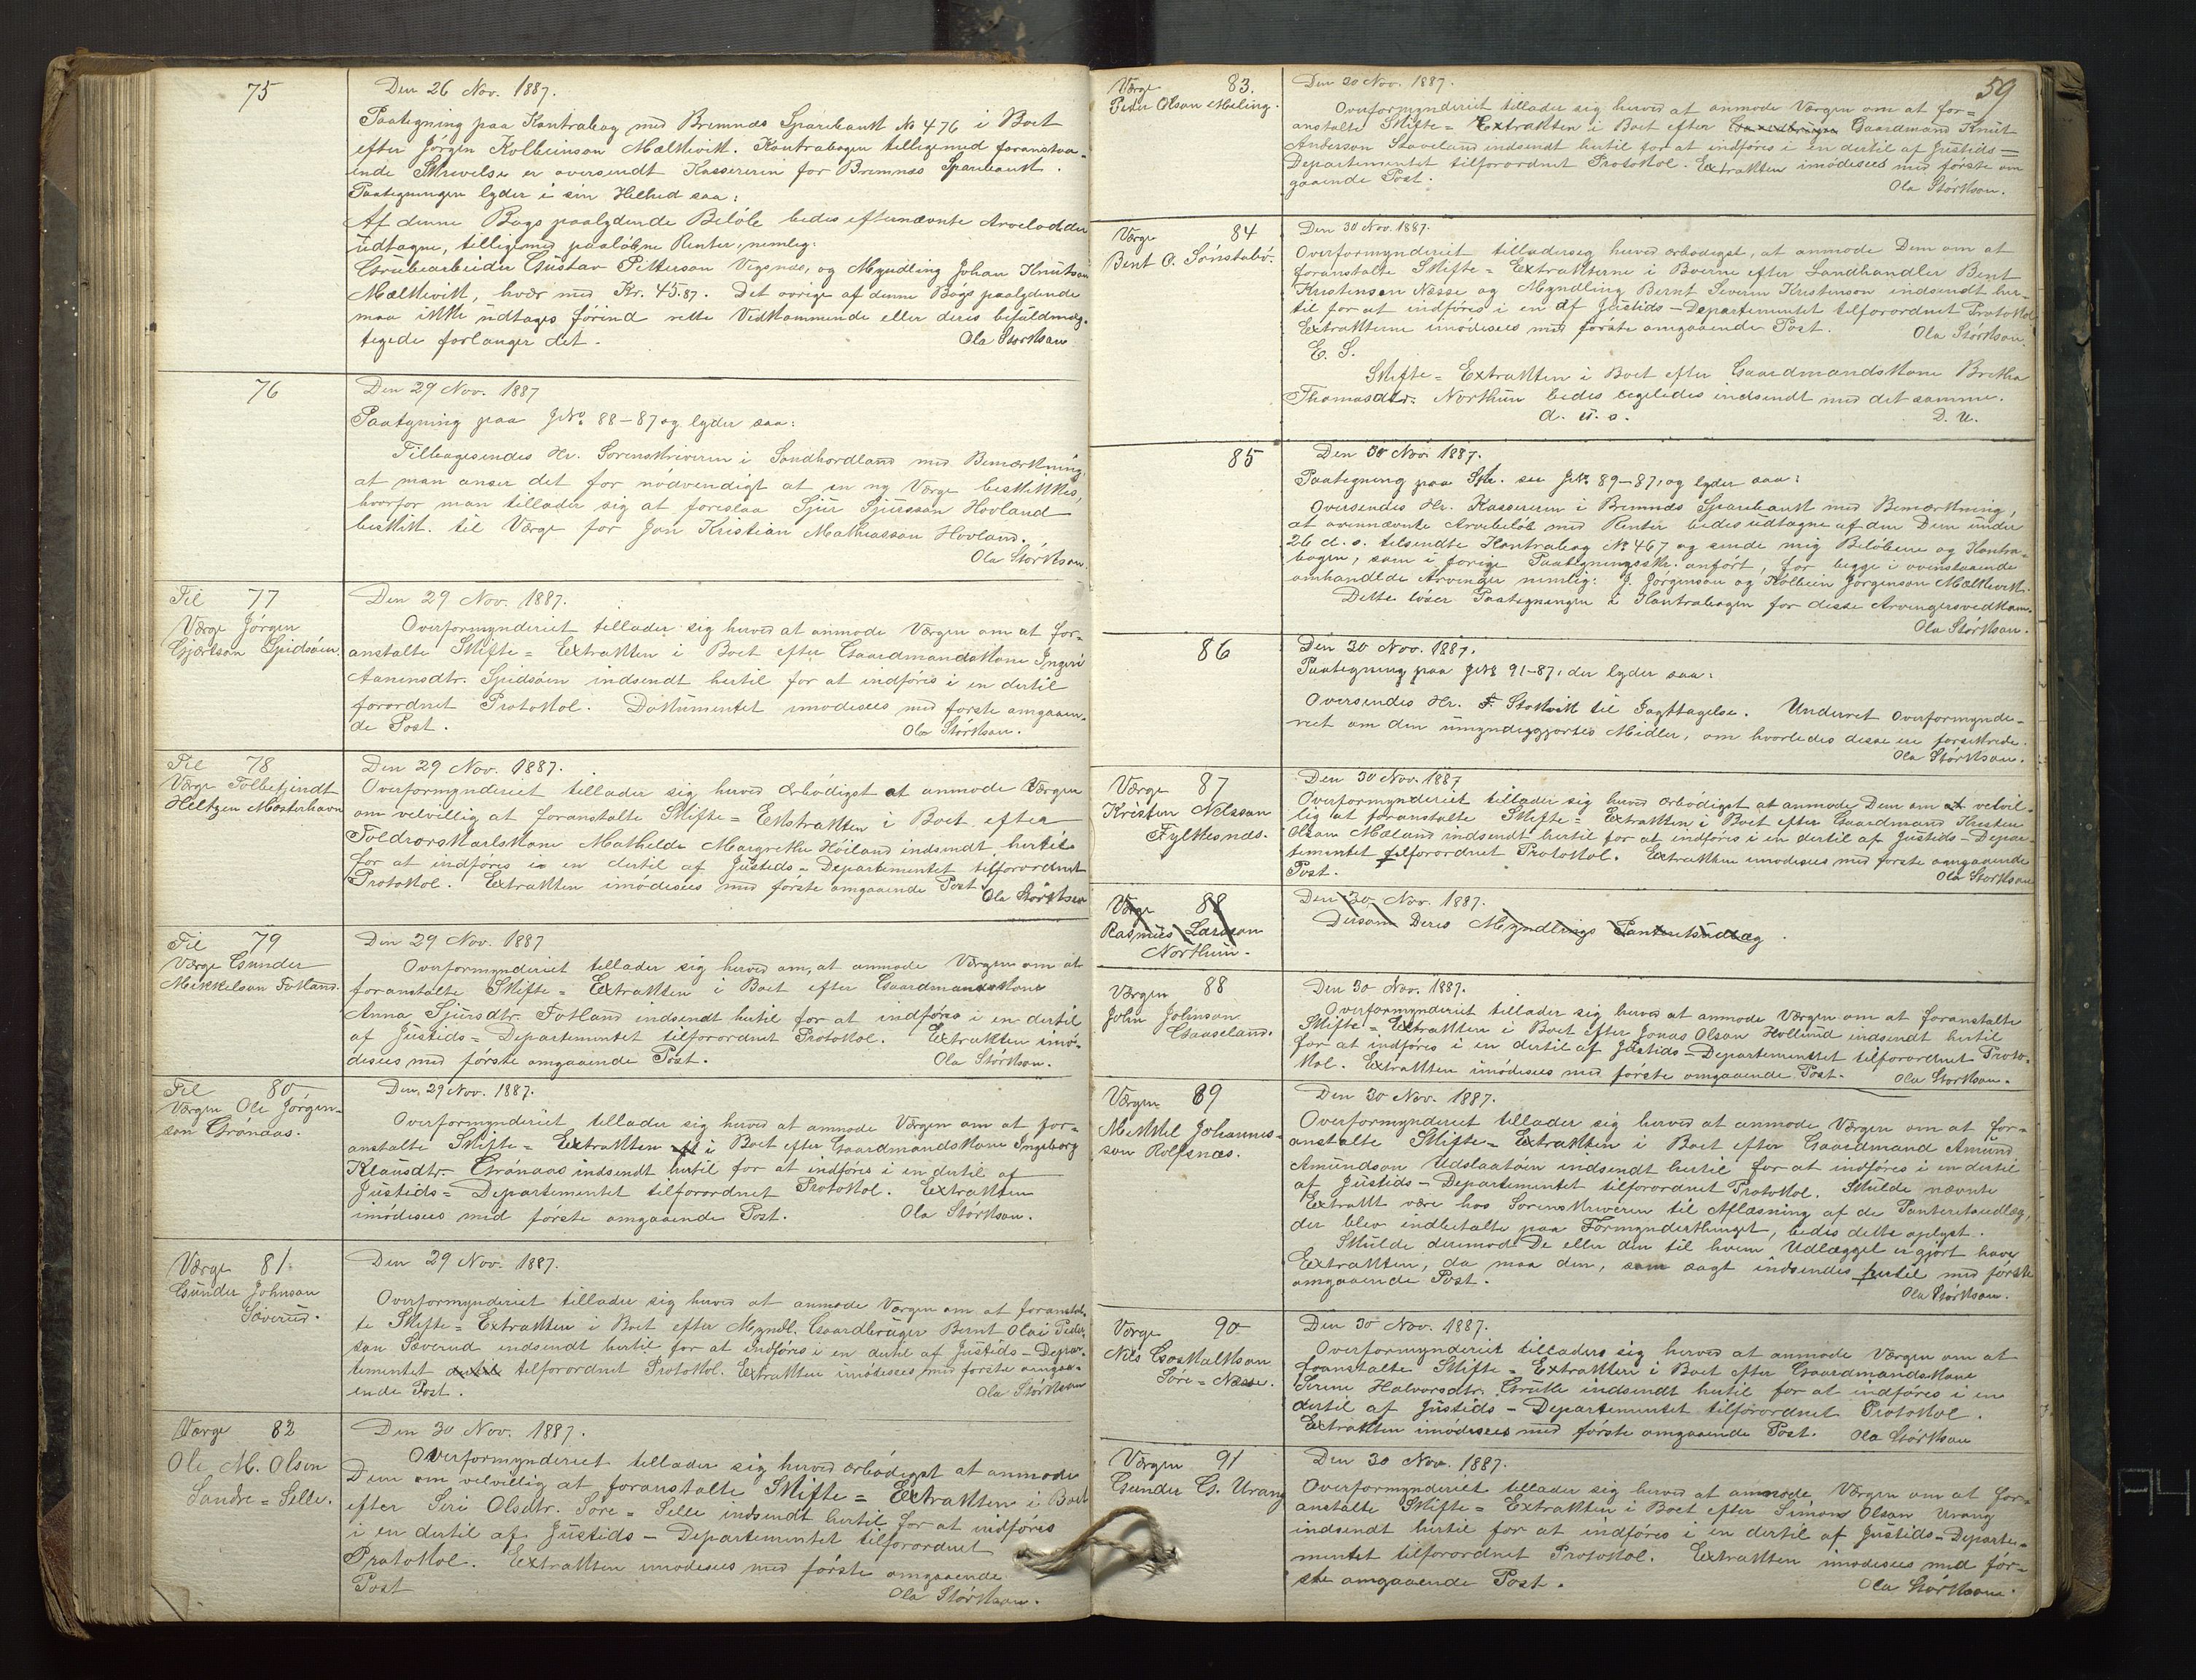 75
Den 26 Nov. 1887.
Paategning paa Kontrabog med Bremnes Sparebank No 476 i Boet
efter Jørgen Kolbeinson Mælkevik. Kontrabogen tilligemed foranstaa-
ende Skrivelse er oversendt Kassereren for Bremnes Sparebank.
Paategningen lyder i sin Helhed saa:
Af denne Bogs paalydende Beløb bedes efternævnte Arvelodder
udtagne, tilligemed paaløbne Renter, nemlig:
Grubearbeider Gustav Pitterson Vigsnæs, og Myndling Johan Knutson
Mælkevik, hver med Kr. 45.87. Det øvrige af denne Bogs paalydende
maa ikke udtages førend rette Vedkommende eller deres befuldmæg-
tigede forlanger det.
Ola Størkson
76
Den 29 Nov. 1887
Paategning paa J.No. 88-87 og lyder saa:
Tilbagesendes Hr. Sorenskriveren i Søndhordland med Bemærkning,
at man anser det for nødvendigt at en ny Værge beskikkes,
hvorfor man tillader sig at foreslaa Sjur Sjursson Hovland
beskikk. til Værge for Jon Kristian Mathiasson Hovland.
Ola Størkson.
Til 77
Værge Jørgen
Gjærtson Spidsøen.
Den 29 Nov. 1887.
Overformynderiet tillader sig herved at anmode Værgen om at for-
anstalte Skifte=Extrakten i Boet efter Gaardmandskone Ingeri
Aanensdtr. Spidsøen indsendt hertil for at indføres i en dertil
forordnet Protokol. Dokumentet imødesees med første omgaaen-
de Post.
Ola Størkson.
Til 78
Værge Tolbetjendt
Hiltzen Mosterhavn
Den 29 Nov. 1887.
Overformynderiet tillader sig herved ærbødigst at anmode Værgen
om velvillig at foranstalte Skifte=Ekstrakten i Boet efter
Toldrorskarlskone Mathilde Margrethe Høiland indsendt hertil
for at indføres i en dertil af Justids=Departementet tilforordnet
Protokol. Extrakten imødesees med første omgaaende Post.
Ola Størkson
Til 79
Værge Gunder
Mikkelson Totland.
Den 29 Nov. 1887
Overformynderiet tillader sig herved om, at anmode Værgen om at
foranstalte Skifte=Extrakten i Boet efter Gaardmandskone
Anna Sjursdtr. Totland indsendt hertil for at indføres i en dertil
af Justids=Departementet tilforordnet Protokol. Extrakten imø-
desees med første omgaaende Post.
Ola Størkson.
Til 80
Værgen Ole Jørgen-
son Grønaas.
Den 29 Nov. 1887.
Overformynderiet tillader sig herved at anmode Værgen om at for-
anstalte Skifte=Extrakten i Boet efter Gaardmandskone Ingeborg
Klausdtr. Grønaas indsendt hertil for at indføres i en dertil af
Justids=Departementet tilforordnet Protokol. Extrakten
imødesees med første omgaaende Post.
Ola Størkson.
Værge 81.
Gunder Johnson
Sæverud.
Den 29 Nov. 1887.
Overformynderiet tillader sig herved at anmode Værgen om at foranstal-
te Skifte=Extrakten i Boet efter Myndl. Gaardbruger Bernt Olai Peder-
son Sæverud indsendt hertil for at indføres i en dertil af Justids-Depar-
tementet dertil tilforordnet Protokol. Extrakten imødesees med første omgaa-
ende Post.
Ola Størkson
Værge 82
Ole M. Olson
Søndre=Selle.
Den 30 Nov. 1887.
Overformynderiet tillader sig herved ærbødigst at anmode
Dem om velvillig at foranstalte Skifte=Extrakten i Boet
efter Seri Olsdtr. Søre=Selle indsendt hertil for at indføres
i en dertil af Justids-Departementet tilforordnet
Protokol. Extrakten imødesees med første omgaaende
Post
Ola Størkson.
59
Værge 83.
Peter Olson Meling.
Den 30 Nov. 1887.
Overformynderiet tillader sig herved at anmode Værgen om at for=
anstalte Skifte=Extrakten i Boet efter Gaardbruger Gaardmand Knut
Anderson Staveland indsendt hertil for at indføres i en dertil af Justids=
Departementet tilforordnet Protokol. Extrakten imødesees med første om
gaaende Post.
Ola Størkson.
Værge 84
Bent O. Sønstabø.
Den 30 Nov. 1887.
Overformynderiet tilladersig herved ærbødigst, at anmode Dem om at
foranstalte Skifte=Extrakterne i Boerne efter Landhandler Bent
Kristensen Næsse og Myndling Bernt Severin Kristenson indsendt her-
til for at indføres i en af Justids-Departementet tilforordnet Protokol
Extrakterne imødesees med første omgaaende Post.
Ola Størkson.
E. S.
Skifte=Extrakten i Boet efter Gaardmandskone Bretha
Thomasdtr. Northun bedes ligeledes indsendt med det samme.
d. u. s.
D. U.
85
Den 30 Nov. 1887.
Paategning paa Skr. se J.No. 89-87, og lyder saa:
Oversendes Hr. Kassereren i Bremnes Sparebank med Bemærkning,
at ovennævnte Arvebeløb med Renter bedes udtagne af den Dem under
26 d. s. tilsendte Kontrabog No 467 og sende mig Beløbene og Kontra-
bogen, som i forige Paategningsskr. anført, for begge i ovenstaaende
omhandlede Arvinger nemlig: J. Jørgenson og Kolbein Jørgenson Mælkevik.
Dette løser Paategningen i Kontrabogen for disse Arvingersvedkom.
Ola Størkson.
86
Den 30 Nov. 1887.
Paategning paa J.No 91-87, der lyder saa:
Oversendes Hr. F. Stokvik til Iagttagelse. Underret Overformynde-
riet om den umyndiggjortes Midler, om hvorledes disse ere forsikrede.
Ola Størkson.
Værge 87
Kristen Nilsson
Fylkesnes.
Den 30 Nov. 1887
Overformynderiet tillader sig herved ærbødigst at anmode Dem om at velvil-
lig at foranstalte Skifte=Extrakten i Boet efter Gaardmand Thosten
Olson Mæland indsendt hertil for at indføres i en dertil af Justids-Depar-
tementet tilforordnet Protokol. Extrakten imødesees med første omgaaende
Post.
Ola Størkson
Værge 88
Rasmus Larsson
Northun.
Den 30 Nov. 1887.
Dersom Deres Myndlings Panteudlæg.
Værgen 88
John Johnson
Gaaseland.
Den 30 Nov. 1887.
Overformynderiet tillader sig herved at anmode Værgen om at foranstalte
Skifte=Extrakten i Boet efter Jonas Olson Hollund indsendt hertil
for at indføres i en dertil af Justids-Departementet tilforordnet Proto-
kol. Extrakten imødesees med første omgaaende Post.
Ola Størkson.
Værgen 89
Mikkel Johannes-
son Rolfsnæs.
Den 30 Nov. 1887.
Overformynderiet tillader sig herved at anmode Værgen om at for=
anstalte Skifte=Extrakten i Boet efter Gaardmand Amund
Amundson Udslaatøen indsendt hertil for at indføres i en dertil
af Justids-Departementet tilforordnet Protokol. Skulde nævnte
Extrakt være hos Sorenskriveren til Aflæsning af de Panteretsudlæg,
der blev indbetalte paa Formynderthinget, bedes dette oplyst.
Skulde derimod De eller den til hvem Udlægget er gjort have
Extrakten, da maa den, som sagt indsendes hertil med første
omgaaende Post.
Ola Størkson.
Værge 90
Nils Goskalkson
Søre=Næsse.
Den 30 Nov. 1887.
Overformynderiet tillader sig herved at anmode Værgen om at
foranstalte Skifte-Extrakten i Boet efter Gaardmandskone
Serine Halvorsdtr. Grutle indsendt hertil for at indføres i en
dertil af Justids-Departementet tilforordnet Protokol.
Extrakten imødesees med første omgaaende Post.
Ola Størkson
Værgen 91
Gunder G. Urang
Den 30 Nov. 1887.
Overformynderiet tillader sig herved at anmode Værgen om at for=
anstalte Skifte=Extrakten i Boet efter Simon Olson Urang
indsendt hertil for at indføres i en dertil af Justids-Departe-
mentet tilforordnet Protokol. Extrakten imødesees med før-
ste omgaaende Post.
Ola Størkson.